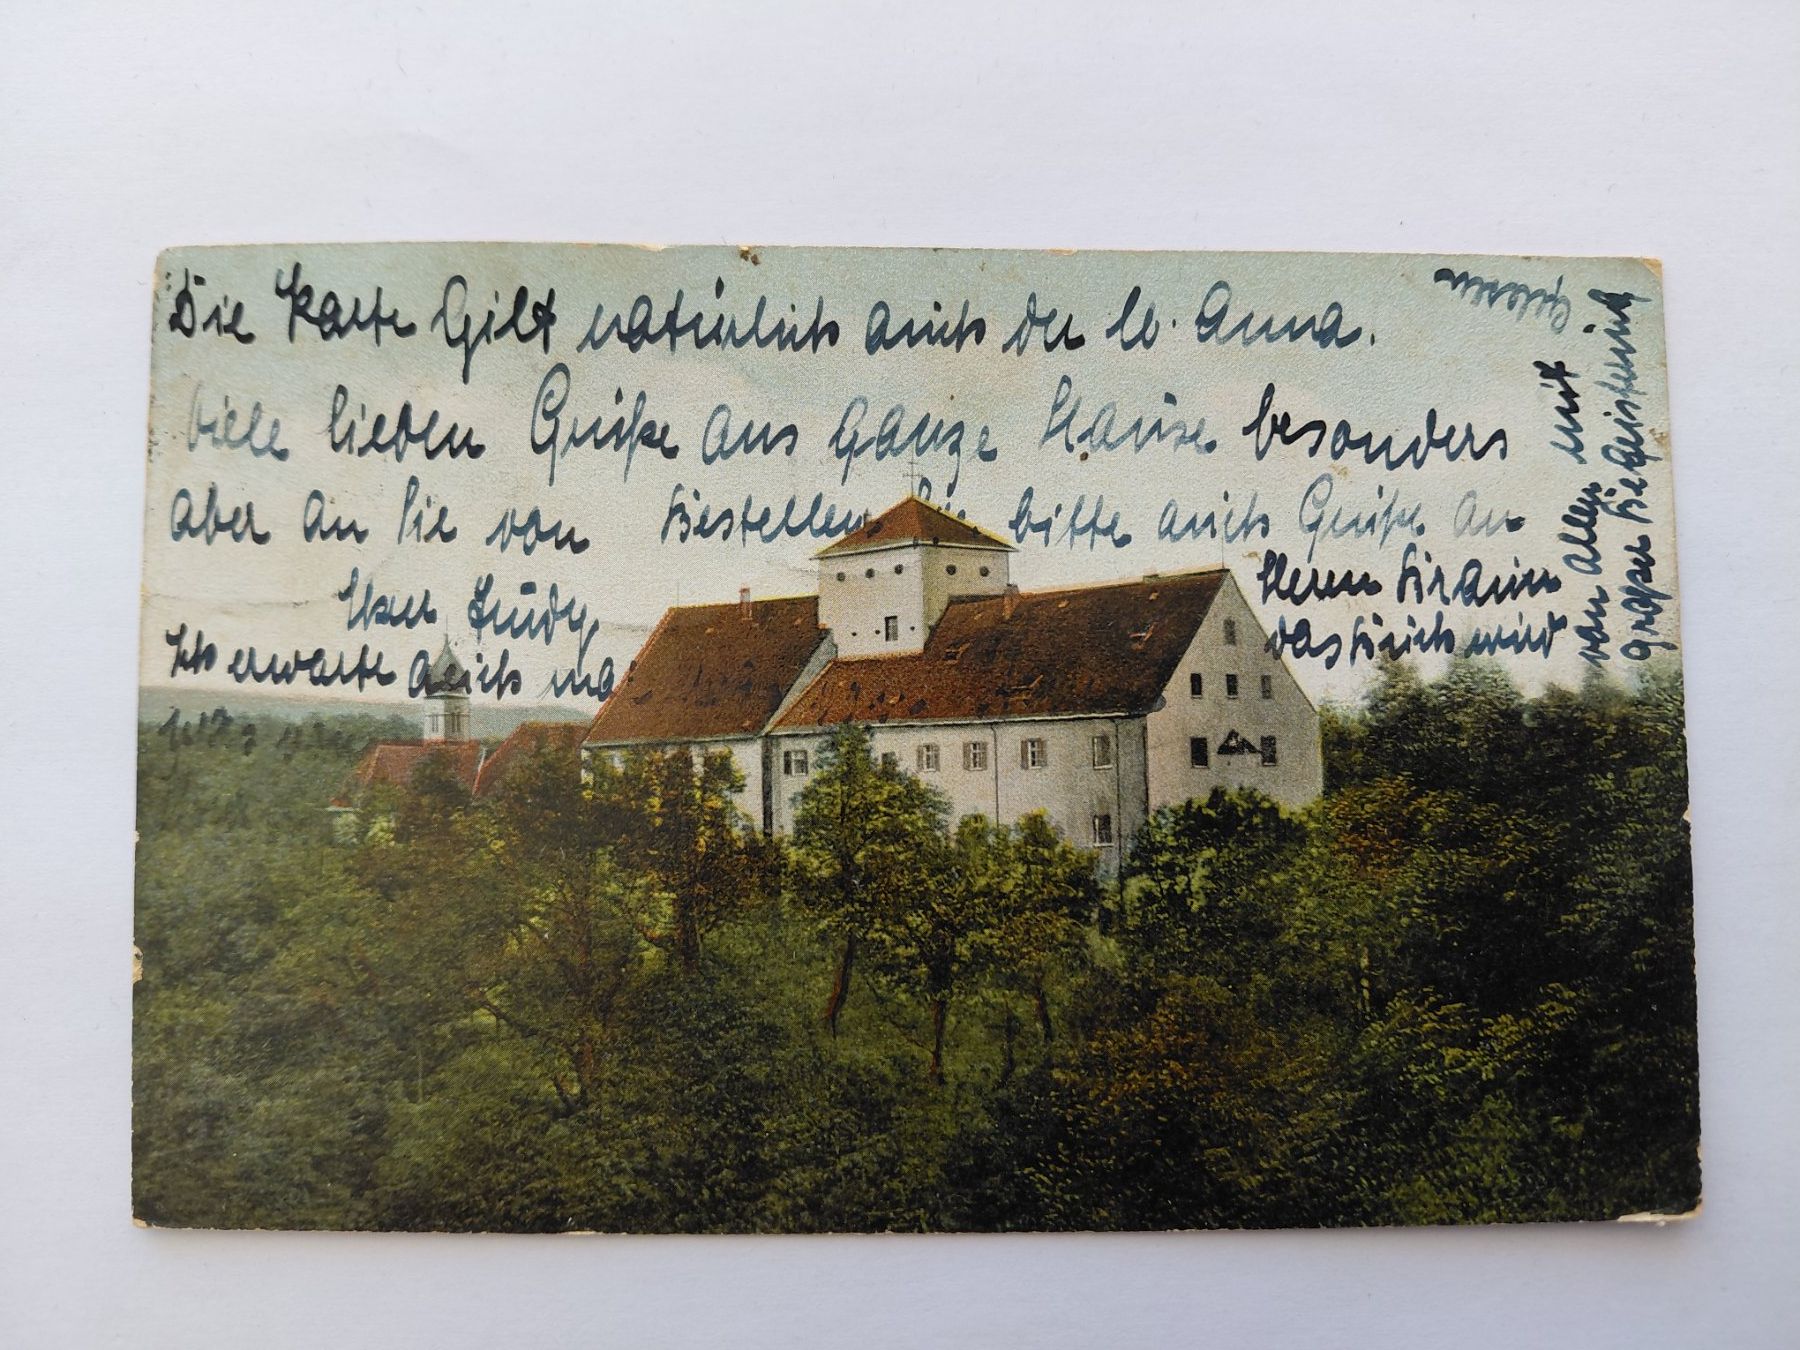 Die Karte Gilt natürlich auch der lb. Anna.
viele lieben Grüße aus ganze Hause besonders
aber an Sie von Bestellen Sie bitte auch Grüße an
Ihser Rudy Herrn Braun
Ich erwarte auch das Buch wird
von allen mit
großer Begeisterung
Gelesen